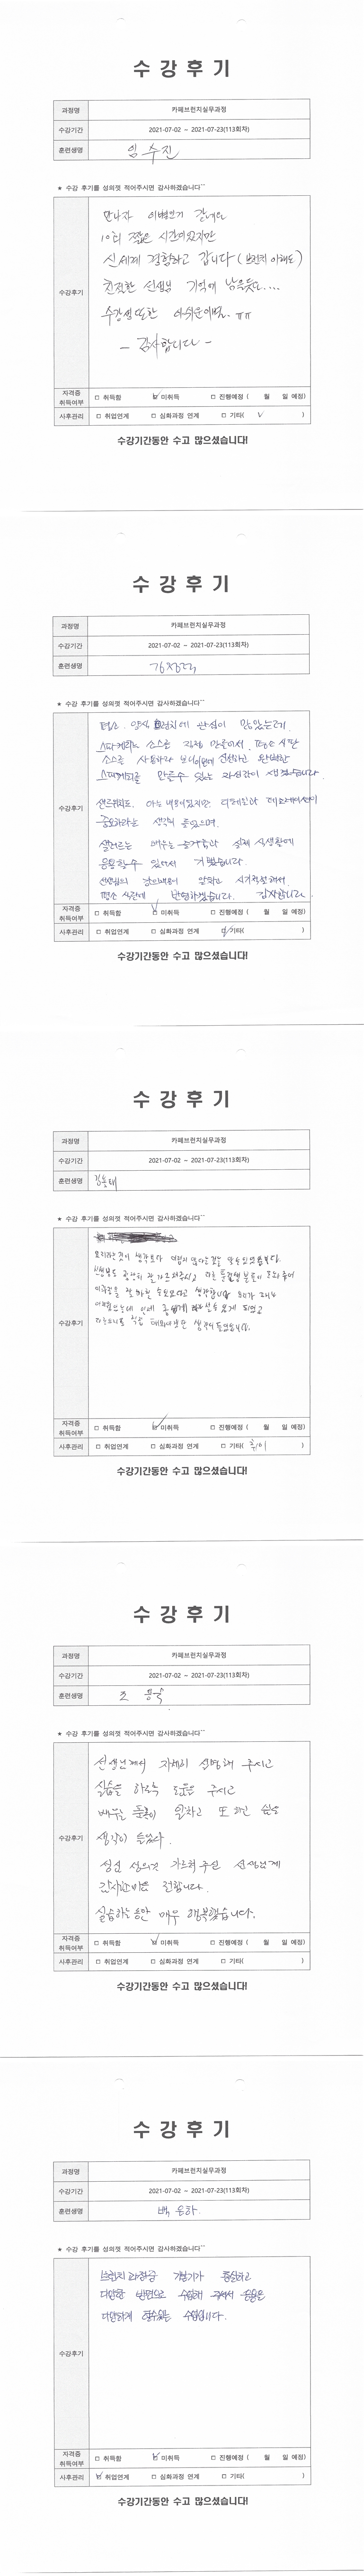 수 강 후 기
과정명 카페브런치실무과정
수강기간 2021-07-02 ~ 2021-07-23(113회차)
훈련생명 임 수진
★ 수강 후기를 성의껏 적어주시면 감사하겠습니다^^
수강후기
만나자 이별인거 같네요
10회 짧은 시간이었지만
신세계 경험하고 갑니다 (브런치 이해도)
친절한 선생님 기억에 남을듯....
수강생 또한 아쉬운이별. ㅠㅠ
- 감사합니다 -
자격증 취득여부 □ 취득함 ☑ 미취득 □ 진행예정 ( 월 일 예정)
사후관리 □ 취업연계 □ 심화과정 연계 □ 기타( ✓ )
수강기간동안 수고 많으셨습니다!
수 강 후 기
과정명 카페브런치실무과정
수강기간 2021-07-02 ~ 2021-07-23(113회차)
훈련생명
★ 수강 후기를 성의껏 적어주시면 감사하겠습니다^^
수강후기
평소 양식 브런치에 관심이 많았는데,
스파게티도 소스를 직접 만들어서, 평소 시판
소스를 사용하다 보니 신선하고 완벽한
스파게티를 만들수 있는 자신감이 생겼습니다.
샌드위치도, 아는 내용이었지만 디테일한 데코레이션이
중요하다는 생각이 들었으며,
샐러드는 배우는 즐거움과 실제 식생활에
응용할수 있어서 기뻤습니다.
선생님의 강의내용이 알차고
평소 식단에 반영하겠습니다. 감사합니다.
자격증 취득여부 □ 취득함 ☑ 미취득 □ 진행예정 ( 월 일 예정)
사후관리 □ 취업연계 □ 심화과정 연계 ☑ 기타( )
수강기간동안 수고 많으셨습니다!
수 강 후 기
과정명 카페브런치실무과정
수강기간 2021-07-02 ~ 2021-07-23(113회차)
훈련생명
★ 수강 후기를 성의껏 적어주시면 감사하겠습니다^^
수강후기
요리라는것이 생각보다 어렵지 않다는걸 알수있었습니다.
선생님도 굉장히 잘 가르쳐주시고 다른 훈련생분들이 도와주어
이과정을 잘 마친 수 있었다고 생각합니다
어려웠는데 인제 즐겁게 할수 있게 되었고
생각이 들었습니다.
자격증 취득여부 □ 취득함 ☑ 미취득 □ 진행예정 ( 월 일 예정)
사후관리 □ 취업연계 □ 심화과정 연계 □ 기타( 취미 )
수강기간동안 수고 많으셨습니다!
수 강 후 기
과정명 카페브런치실무과정
수강기간 2021-07-02 ~ 2021-07-23(113회차)
훈련생명 조
★ 수강 후기를 성의껏 적어주시면 감사하겠습니다^^
수강후기
선생님께서 자세히 설명해 주시고
실습을 하도록 도움을 주시고
배우는 동안 알차고 또 하고 싶은
생각이 들었다.
성심 성의껏 가르쳐 주신 선생님께
감사한마음 전합니다.
실습하는동안 매우 행복했습니다.
자격증 취득여부 □ 취득함 ☑ 미취득 □ 진행예정 ( 월 일 예정)
사후관리 □ 취업연계 □ 심화과정 연계 □ 기타( )
수강기간동안 수고 많으셨습니다!
수 강 후 기
과정명 카페브런치실무과정
수강기간 2021-07-02 ~ 2021-07-23(113회차)
훈련생명 백 은하
★ 수강 후기를 성의껏 적어주시면 감사하겠습니다^^
수강후기
브런치 과정은 충실하고
다양한 방면으로 수업해 주셔서
다양하게 할수있는 수업입니다.
자격증 취득여부 □ 취득함 ☑ 미취득 □ 진행예정 ( 월 일 예정)
사후관리 ☑ 취업연계 □ 심화과정 연계 □ 기타( )
수강기간동안 수고 많으셨습니다!